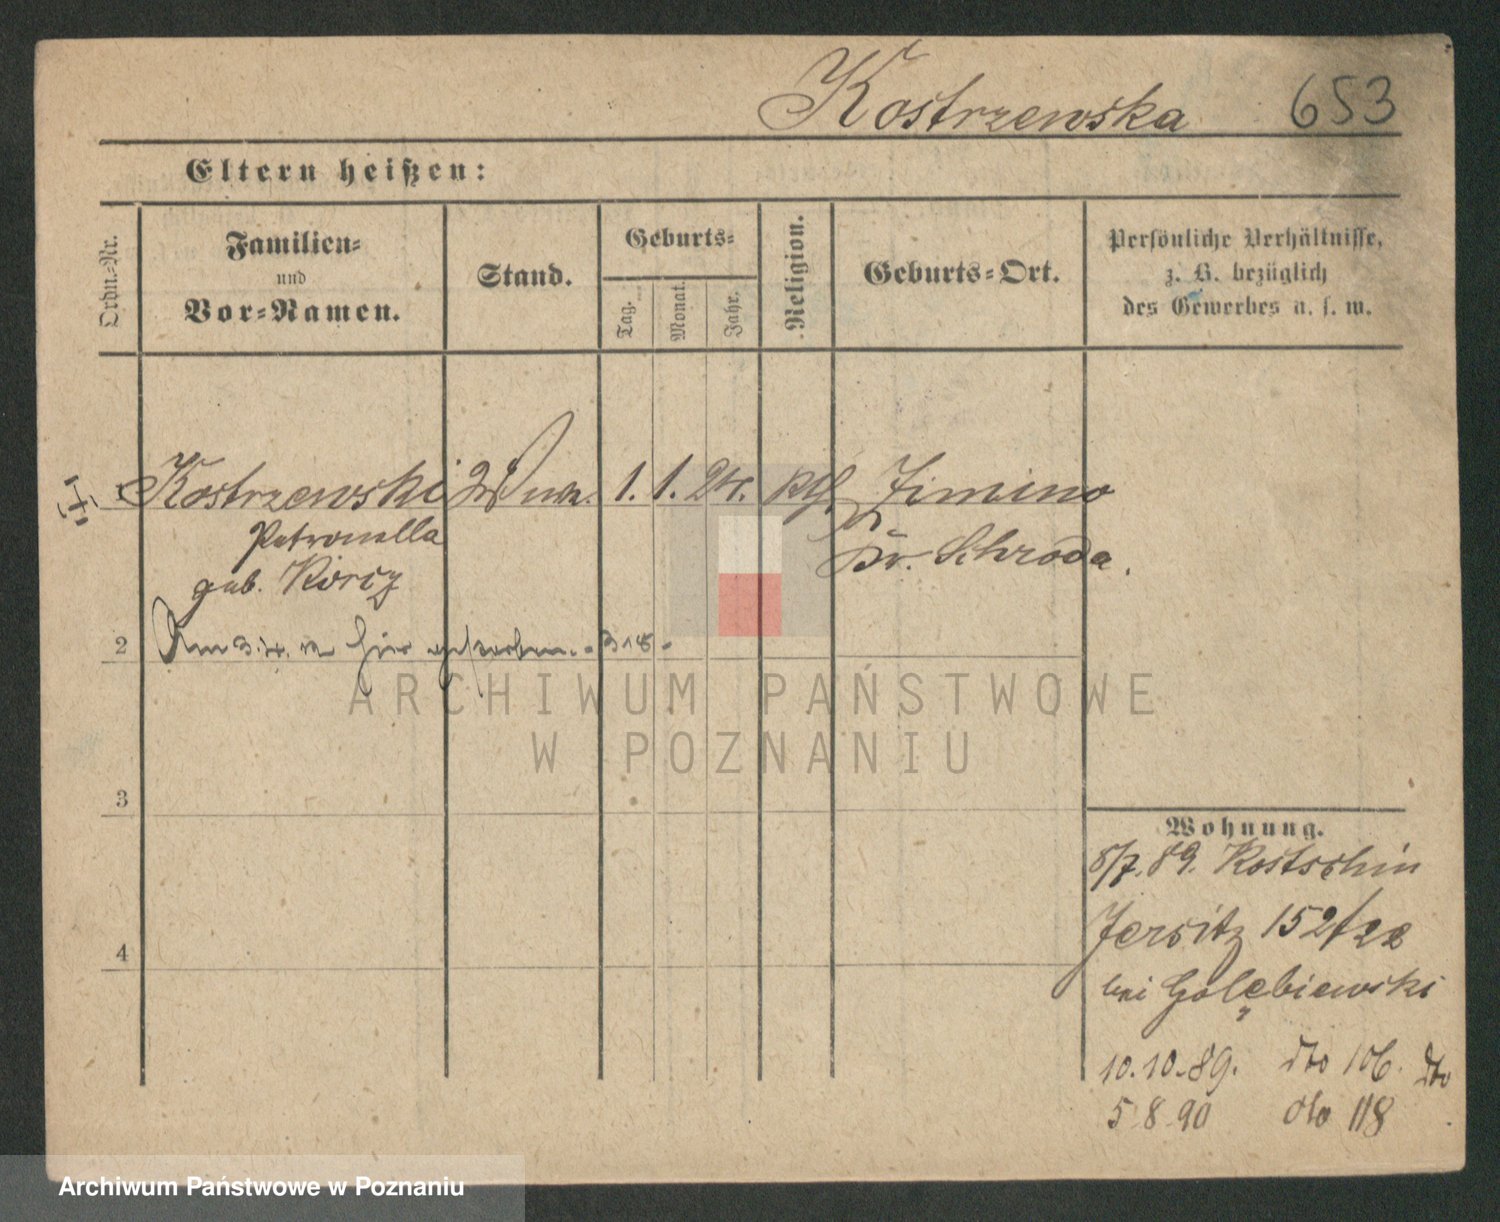 Kostrzewska 653
Eltern heißen:
Ordn.-Nr.
Familien-
und
Vor-Namen.
Stand.
Geburts-
Tag.
Monat.
Jahr.
Religion.
Geburts-Ort.
Persönliche Verhältnisse,
z. B. bezüglich
des Gewerbes u. s. w.
Kostrzewski 1. 1. 24. Kth. Zimino
Petronella
geb. Kr. Schroda.
2 Am hier gestorben. - 318 -
3
4
Wohnung.
8/7. 89. Kostschin
Jersitz 152/22
bei Golębiewski
10.10.89. dto 106. dto
5.8.90 dto 118
ARCHIWUM PAŃSTWOWE
W POZNANIU
Archiwum Państwowe w Poznaniu